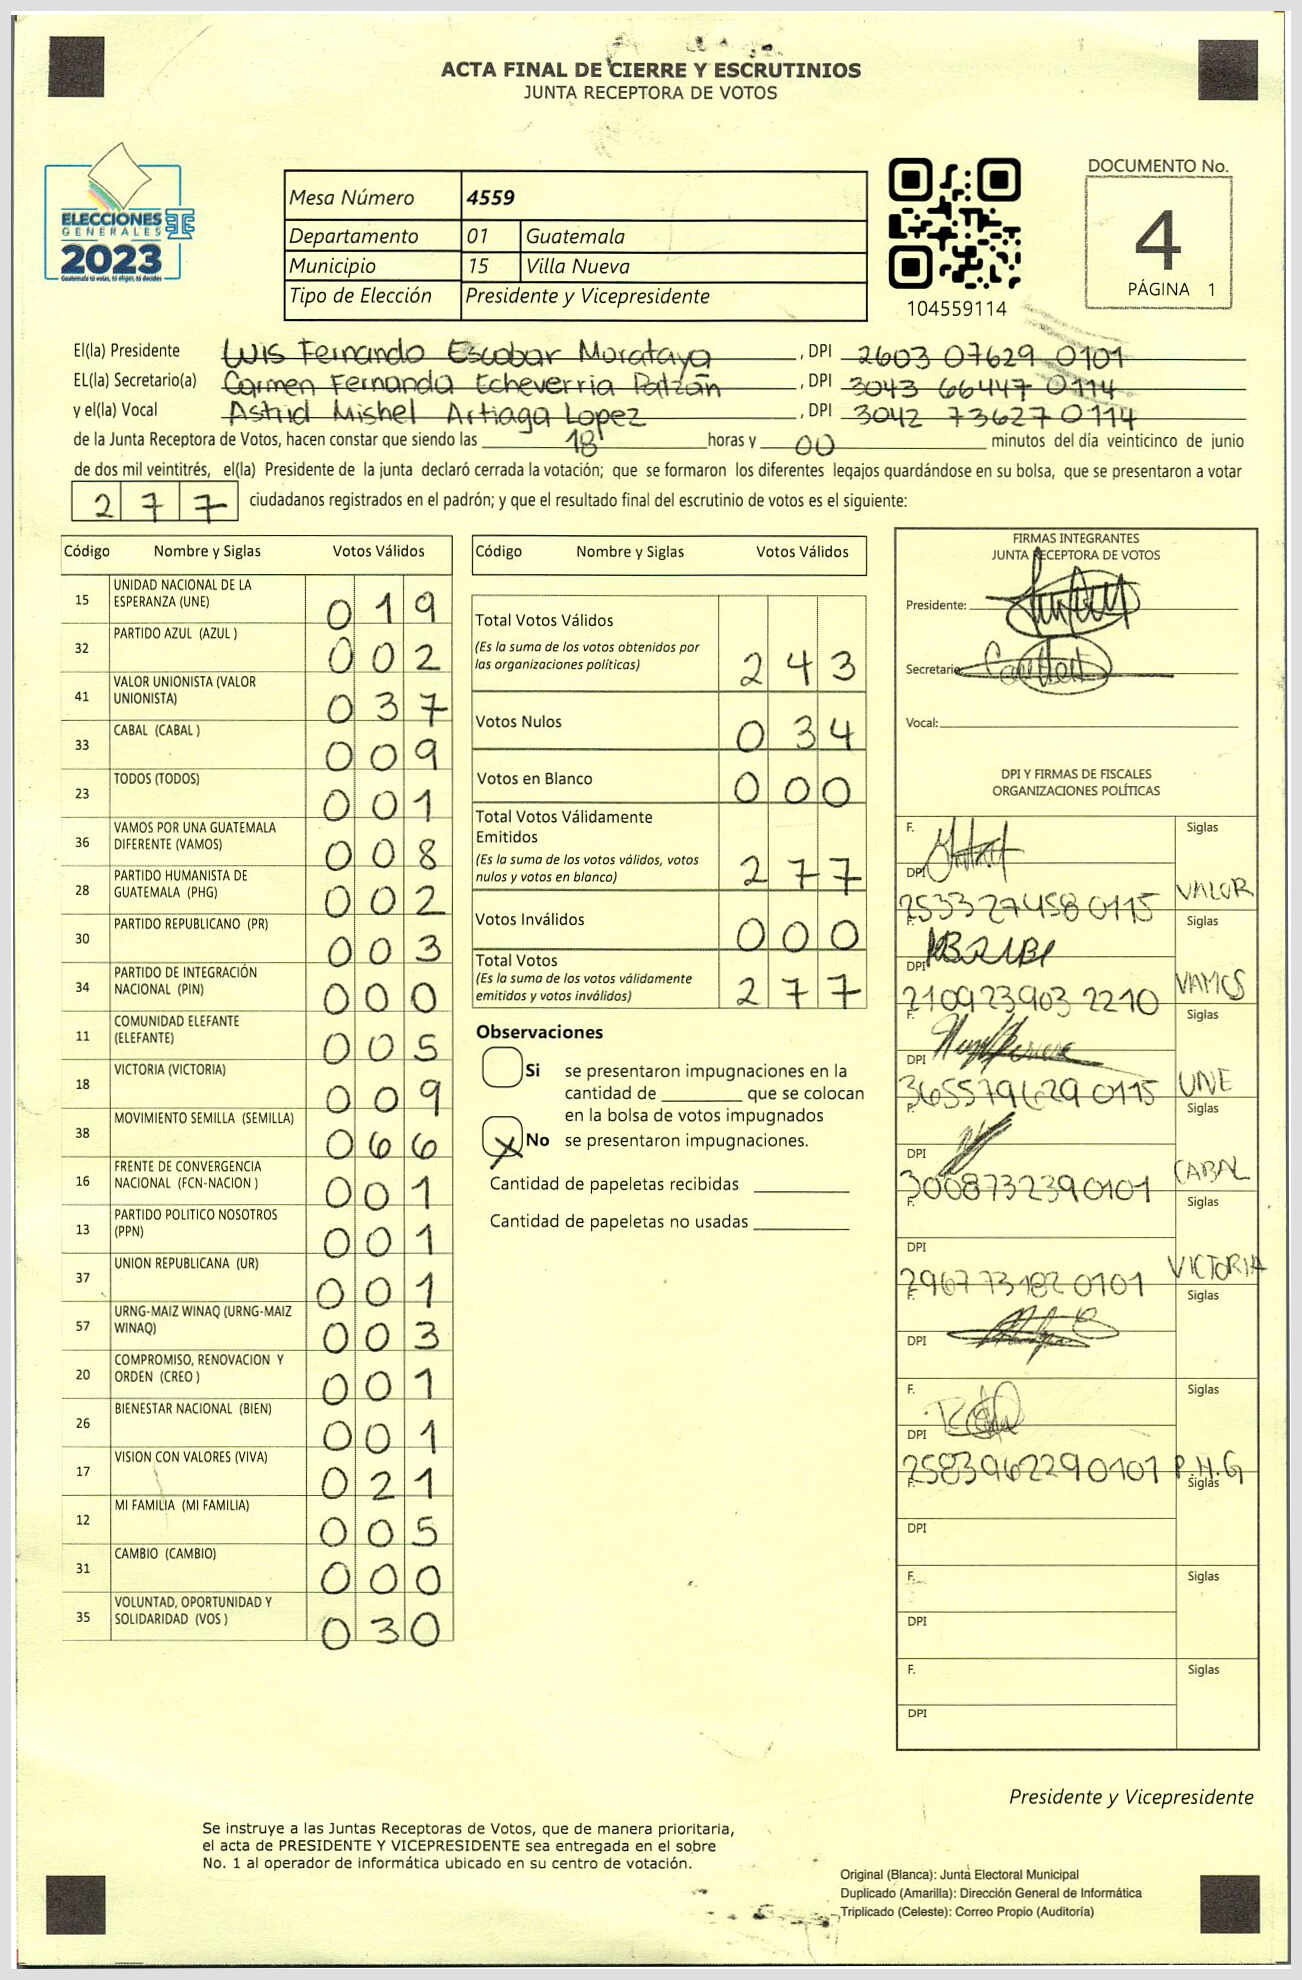 ACTA FINAL DE CIERRE Y ESCRUTINIOS
JUNTA RECEPTORA DE VOTOS
ELECCIONES
GENERALES
2023
Guatemala tú votas, tú eliges, tú decides
Mesa Número 4559
Departamento 01 Guatemala
Municipio 15 Villa Nueva
Tipo de Elección Presidente y Vicepresidente
104559114
DOCUMENTO No.
4
PÁGINA 1
El(la) Presidente Luis Fernando Escobar Morataya, DPI 2603 07629 0101
EL(la) Secretario(a) Carmen Fernanda Echeverria Patzán, DPI 3043 66447 0114
y el(la) Vocal Astrid Mishel Artiaga Lopez, DPI 3042 73627 0114
de la Junta Receptora de Votos, hacen constar que siendo las 18 horas y 00 minutos del día veinticinco de junio
de dos mil veintitrés, el(la) Presidente de la junta declaró cerrada la votación; que se formaron los diferentes legajos guardándose en su bolsa, que se presentaron a votar
277 ciudadanos registrados en el padrón; y que el resultado final del escrutinio de votos es el siguiente:
Código Nombre y Siglas Votos Válidos
15 UNIDAD NACIONAL DE LA ESPERANZA (UNE) 019
32 PARTIDO AZUL (AZUL ) 002
41 VALOR UNIONISTA (VALOR UNIONISTA) 037
33 CABAL (CABAL ) 009
23 TODOS (TODOS) 001
36 VAMOS POR UNA GUATEMALA DIFERENTE (VAMOS) 008
28 PARTIDO HUMANISTA DE GUATEMALA (PHG) 002
30 PARTIDO REPUBLICANO (PR) 003
34 PARTIDO DE INTEGRACIÓN NACIONAL (PIN) 000
11 COMUNIDAD ELEFANTE (ELEFANTE) 005
18 VICTORIA (VICTORIA) 009
38 MOVIMIENTO SEMILLA (SEMILLA) 066
16 FRENTE DE CONVERGENCIA NACIONAL (FCN-NACION ) 001
13 PARTIDO POLITICO NOSOTROS (PPN) 001
37 UNION REPUBLICANA (UR) 001
57 URNG-MAIZ WINAQ (URNG-MAIZ WINAQ) 003
20 COMPROMISO, RENOVACION Y ORDEN (CREO ) 001
26 BIENESTAR NACIONAL (BIEN) 001
17 VISION CON VALORES (VIVA) 021
12 MI FAMILIA (MI FAMILIA) 005
31 CAMBIO (CAMBIO) 000
35 VOLUNTAD, OPORTUNIDAD Y SOLIDARIDAD (VOS ) 030
Código Nombre y Siglas Votos Válidos
Total Votos Válidos
(Es la suma de los votos obtenidos por
las organizaciones políticas) 243
Votos Nulos 034
Votos en Blanco 000
Total Votos Válidamente
Emitidos
(Es la suma de los votos válidos, votos
nulos y votos en blanco) 277
Votos Inválidos 000
Total Votos
(Es la suma de los votos válidamente
emitidos y votos inválidos) 277
Observaciones
Si se presentaron impugnaciones en la
cantidad de ________ que se colocan
en la bolsa de votos impugnados
X No se presentaron impugnaciones.
Cantidad de papeletas recibidas
Cantidad de papeletas no usadas
FIRMAS INTEGRANTES
JUNTA RECEPTORA DE VOTOS
Presidente:
Secretario
Vocal:
DPI Y FIRMAS DE FISCALES
ORGANIZACIONES POLÍTICAS
F. Siglas
DPI 2533 27458 0115 VALOR
F. Siglas
DPI 210923903 2210 VAMOS
F. Siglas
DPI 365579629 0115 UNE
F. Siglas
DPI 3008732390101 CABAL
F. Siglas
DPI 2967 73182 0101 VICTORIA
F. Siglas
DPI
F. Siglas
DPI 2583962290101 P.H.G
F. Siglas
DPI
F. Siglas
DPI
F. Siglas
DPI
Presidente y Vicepresidente
Se instruye a las Juntas Receptoras de Votos, que de manera prioritaria,
el acta de PRESIDENTE Y VICEPRESIDENTE sea entregada en el sobre
No. 1 al operador de informática ubicado en su centro de votación.
Original (Blanca): Junta Electoral Municipal
Duplicado (Amarilla): Dirección General de Informática
Triplicado (Celeste): Correo Propio (Auditoría)